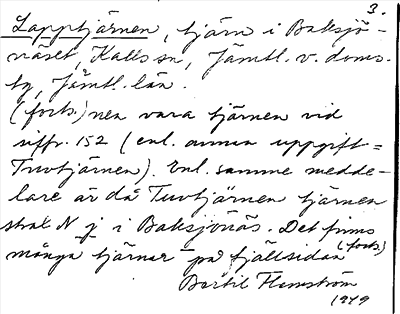 3.
Lapptjärnen, tjärn i Baksjö-
näset, Kalls sn, Jämtl. v. doms.
tg, Jämtl. län.
(forts.) nen vara tjärnen vid
siffr. 152 (enl. annan uppgift =
Tuvtjärnen). Enl. samme medde-
lare är då Tuvtjärnen tjärnen
strax N j i Baksjönäs. Det finns
många tjärnar på fjällsidan (forts)
Bertil Flemström
1949